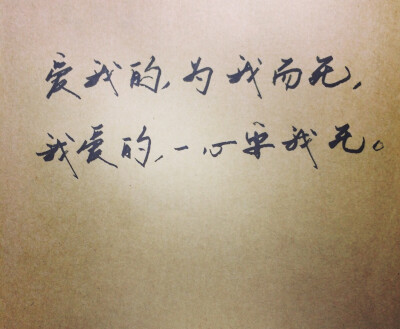 爱我的,为我而死,
我爱的,一心要我死。